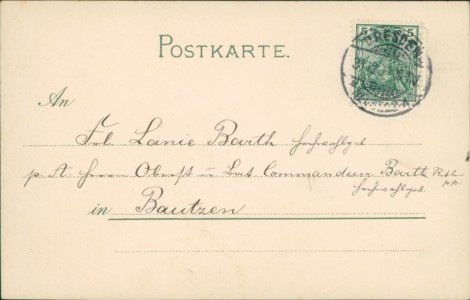 POSTKARTE.
5 5
DRESDEN
An
Frl. Lanie Barth Hochwohlgeb
p. st. Herrn Oberst u. Bat. Commandeur Barth
Hochwohlgeb.
in Bautzen